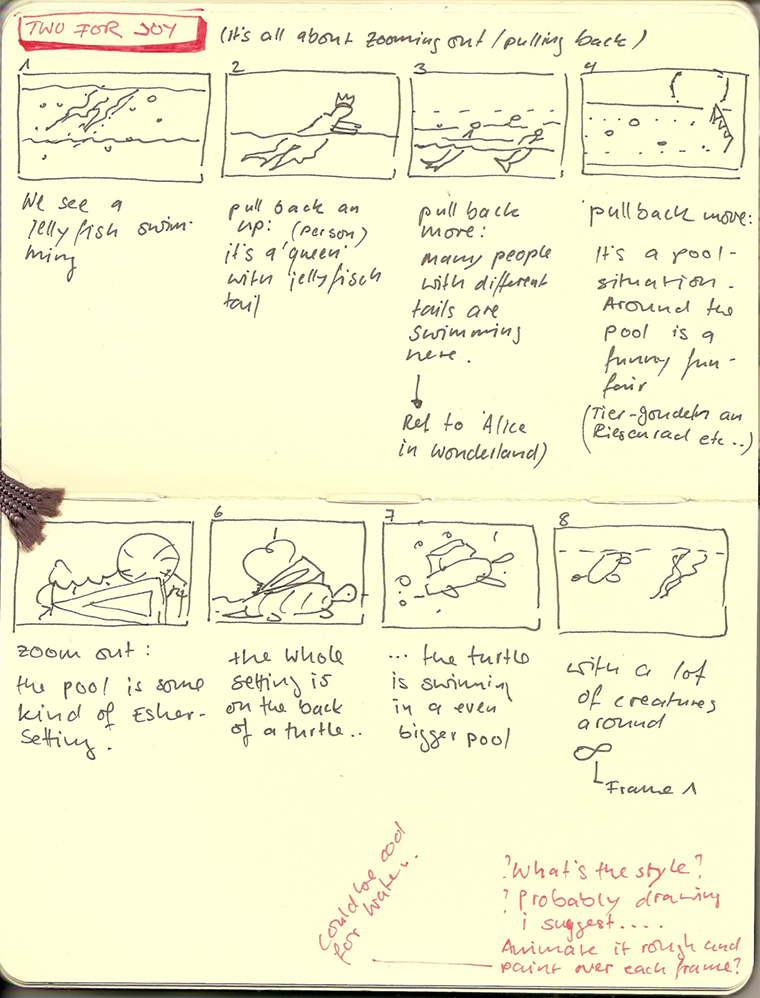 TWO FOR JOY
(it's all about zooming out/pulling back)
1
2
3
4
We see a
jellyfish swim-
ming
pull back an
up: (person)
it's a 'queen'
with jellyfisch
tail
pull back
more:
many people
with different
tails are
swimming
here.
Ref to 'Alice
in wonderland)
pullback move:
It's a pool-
situation.
Around the
pool is a
funny fun-
fair
(Tier-gondeln an
Riesenrad etc..)
6
7
8
zoom out:
the pool is some
kind of Esher-
Setting.
the whole
setting is
on the back
of a turtle..
... the turtle
is swimming
in a even
bigger pool
with a lot
of creatures
around
∞
Frame 1
Could be cool
for water..
?What's the style?
? Probably drawing
i suggest....
Animate it rough and
paint over each frame?